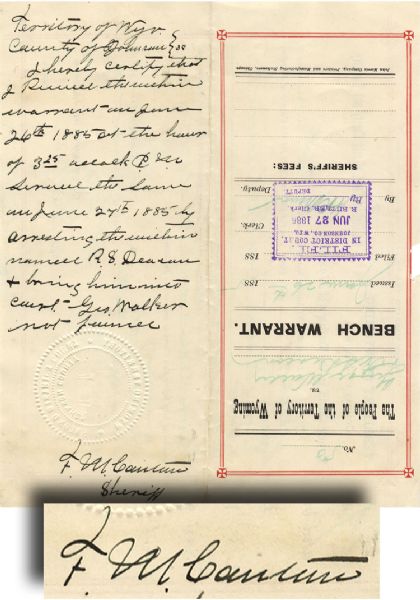 Territory of Wyo
County of Johnson } ss
I hereby certify that
I Received the within
warrant on June
26th 1885 at the hour
of 3 25 oclock P M &
Served the Same
on June 27th 1885 by
arresting the within
named R. S. Deacon
& bring him into
court. Geo. Walker
not found
F. M. Canton
Sheriff
No.
The People of the Territory of Wyoming
vs.
BENCH WARRANT.
Issued 188
Filed 188
Clerk.
By Deputy.
SHERIFF'S FEES:
FILED
IN DISTRICT COURT,
JOHNSON CO., WYO.
JUN 27 1885
Clerk
DEPUTY.
F. M. Canton